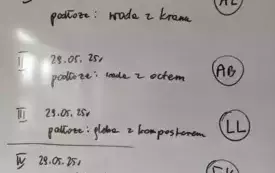 podłoże: woda z kranu
II 29.05.25r
podłoże: woda z octem
AB
III 29.05.25r
podłoże: gleba z komposterem
LL
IV 29.05.25r